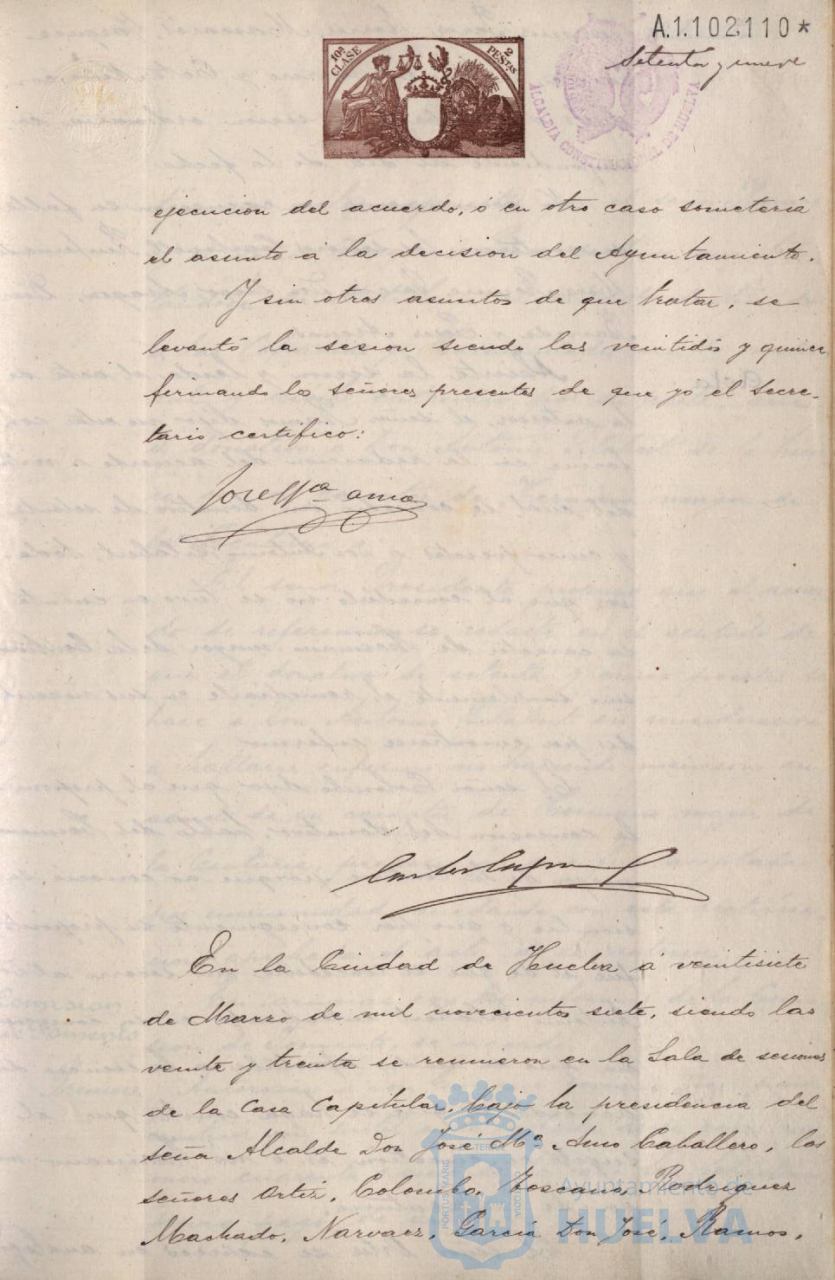 A.1.102,110*
Setenta y nueve
10ª CLASE
2 PESTAS
ALCALDIA CONSTITUCIONAL DE HUELVA
ejecucion del acuerdo, ó en otro caso someteria
el asunto á la decision del Ayuntamiento.
Y sin otros asuntos de que tratar, se
levantó la sesion siendo las veintidós y quince
firmando los señores presentes de que yo el Secre-
tario certifico:
En la Ciudad de Huelva á veintisiete
de Marzo de mil novecientos siete, siendo las
veinte y treinta se reunieron en la Sala de sesiones
de la Casa Capitular, bajo la presidencia del
seña Alcalde Don José Mª Amo Caballero, los
señores Ortiz, Colombo, Toscano, Rodriguez
Machado, Narvaez, Garcia Don José, Ramos,
Ayuntamiento de
HUELVA